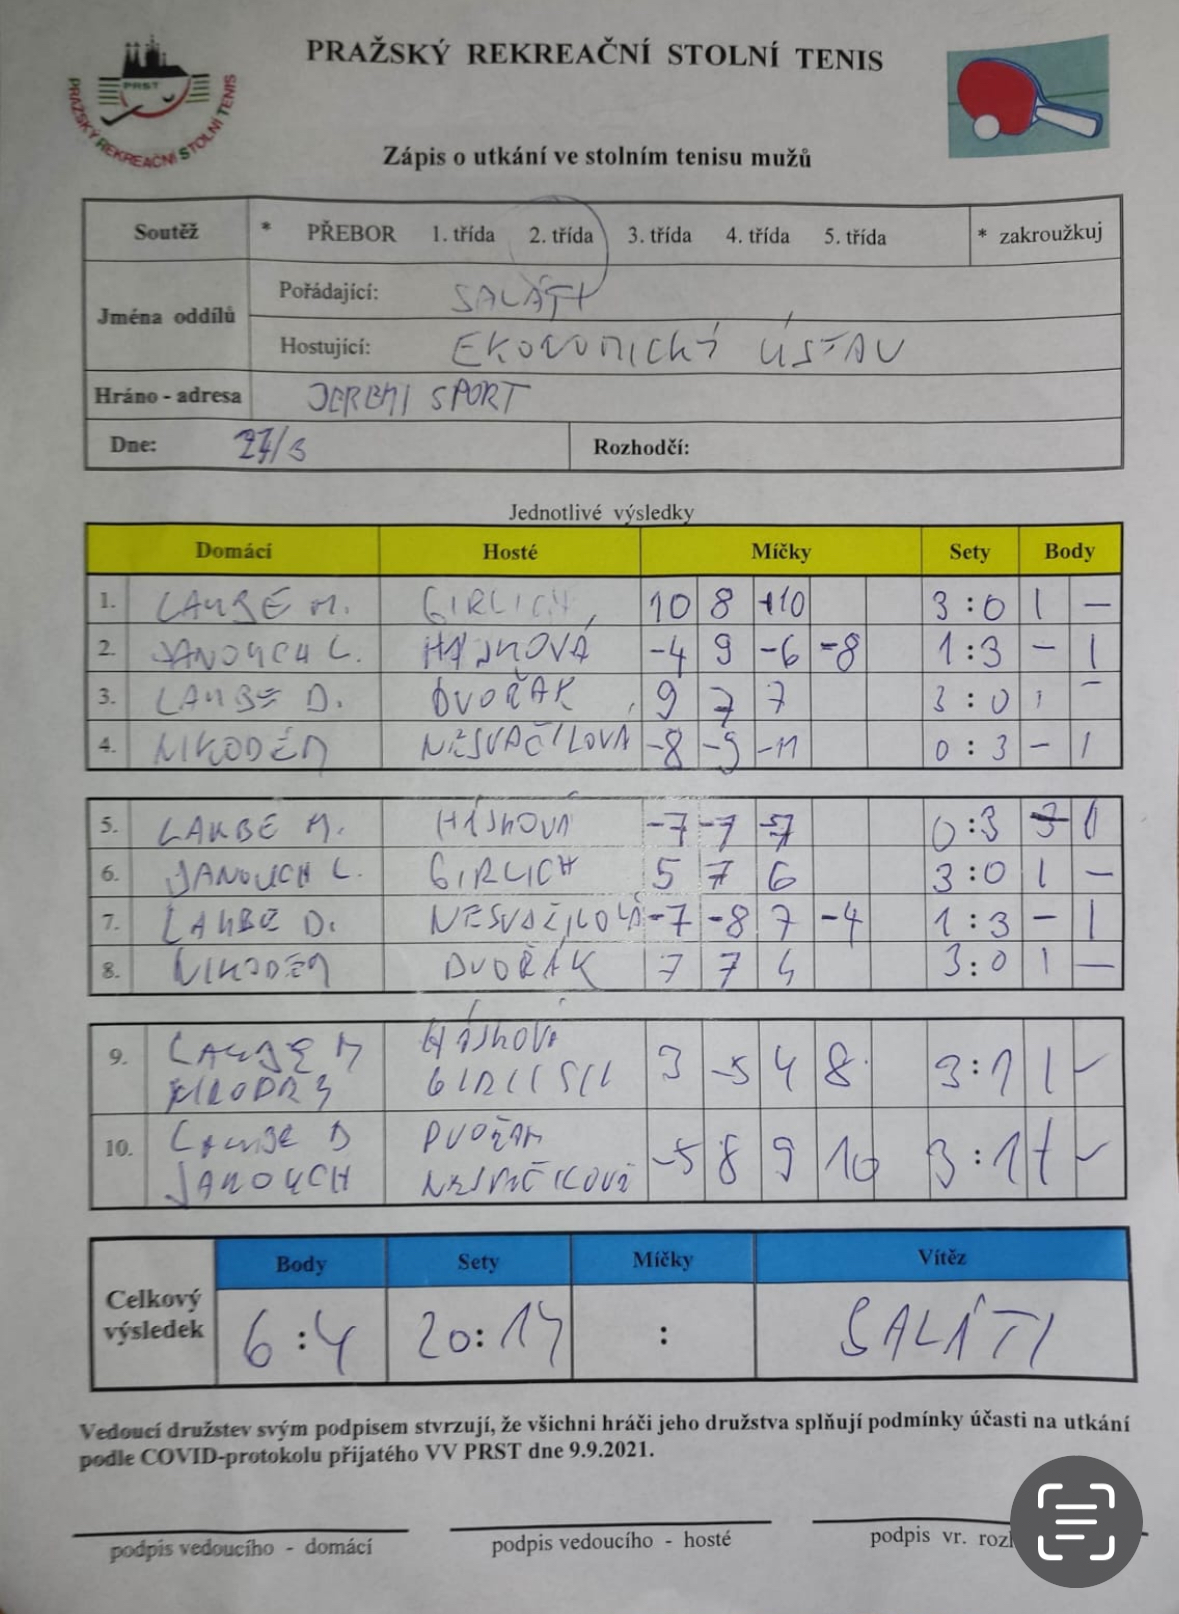 PRAŽSKÝ REKREAČNÍ STOLNÍ TENIS
PRST
PRAŽSKÝ REKREAČNÍ STOLNÍ TENIS
Zápis o utkání ve stolním tenisu mužů
Soutěž * PŘEBOR 1. třída 2. třída 3. třída 4. třída 5. třída * zakroužkuj
Jména oddílů
Pořádající: SALÁTI
Hostující: EKONOMICKÝ ÚSTAV
Hráno - adresa JEREMI SPORT
Dne: 27/3 Rozhodčí:
Jednotlivé výsledky
Domácí Hosté Míčky Sety Body
1. LAUBE M. GIRLICH 10 8 10 3:0 1 –
2. JANOUCH L. HÁJKOVÁ -4 9 -6 -8 1:3 – 1
3. LAUBE D. DVOŘÁK 9 7 7 3:0 1 –
4. NIKODÉM NESVAČILOVÁ -8 -9 -11 0:3 – 1
5. LAUBE M. HÁJKOVÁ -7 -7 -7 0:3 1
6. JANOUCH L. GIRLICH 5 7 6 3:0 1 –
7. LAUBE D. NESVAČILOVÁ -7 -8 7 -4 1:3 – 1
8. NIKODÉM DVOŘÁK 7 7 4 3:0 1 –
9. LAUBE M HÁJKOVÁ 3 -5 4 8 3:1 1 –
10. LAUBE D DVOŘÁK -5 8 9 10 3:1 1 –
JANOUCH NESVAČILOVÁ
Body Sety Míčky Vítěz
Celkový výsledek 6:4 20:14 : SALÁTI
Vedoucí družstev svým podpisem stvrzují, že všichni hráči jeho družstva splňují podmínky účasti na utkání
podle COVID-protokolu přijatého VV PRST dne 9.9.2021.
podpis vedoucího - domácí podpis vedoucího - hosté podpis vr.